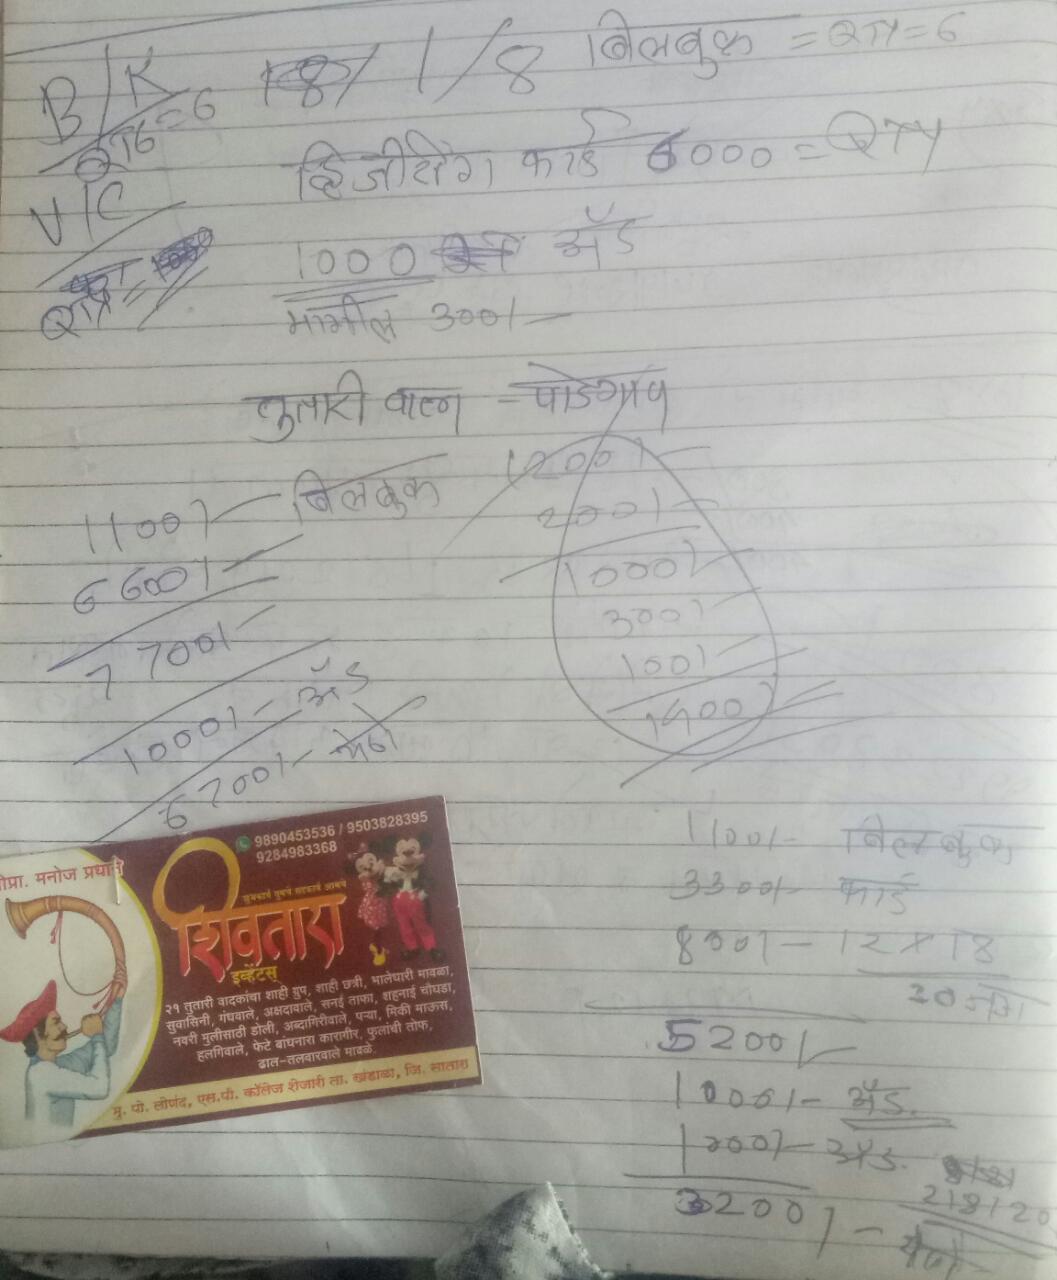 B/K
QTY=6
1/8 बिलबुक = QTY=6
V/C
व्हिजीटींग कार्ड 6000 = QTY
1000 अॅड
मागील 300/-
तुतारी वाला - पाडेगाव
1100/- बिलबुक
6600/-
7700/-
1000/- अॅड
6700/- येणे
1200/-
200/-
1000/-
300/-
100/-
1400/
1100/- बिल बुक
3300/- कार्ड
800/- 12 x 18
20
5200/-
1000/- अॅड.
1000/- अॅड.
2/8/20
3200/- येणे
9890453536 / 9503828395
9284983368
प्रा. मनोज प्रधाने
शिवतारा
इव्हेंटस्
२१ तुतारी वादकांचा शाही ग्रुप, शाही छत्री, भालेधारी मावळा,
सुवासिनी, गंधवाले, अक्षदावाले, सनई ताफा, शहनाई चौघडा,
नवरी मुलीसाठी डोली, अब्दागिरीवाले, पऱ्या, मिकी माऊस,
हलगिवाले, फेटे बांधनारा कारागीर, फुलांची तोफ,
ढाल-तलवारवाले मावळे.
मु. पो. लोणंद, एस.पी. कॉलेज शेजारी ता. खंडाळा, जि. सातारा